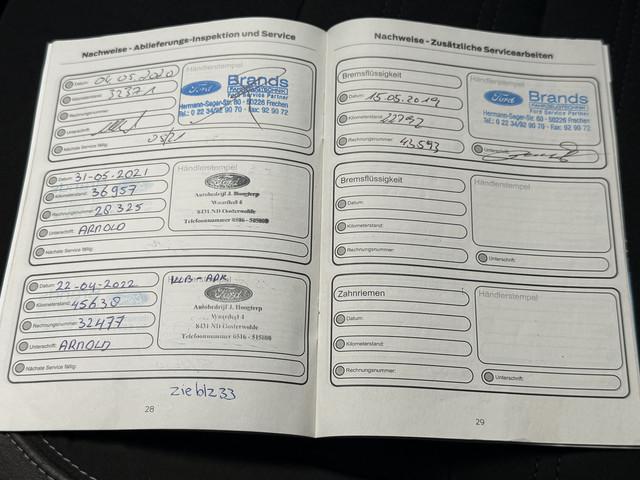 Nachweise - Ablieferungs-Inspektion und Service
Datum: 04.05.2020
Kilometerstand: 32371
Rechnungsnummer:
Unterschrift:
Nächste Service fällig: 05/21
Händlerstempel
Ford
Brands
FAHRZEUGTECHNIK
Ford Service Partner
Hermann-Seger-Str. 60 - 50226 Frechen
Tel.: 0 22 34/92 90 70 - Fax: 92 90 72
Datum: 31-05-2021
Kilometerstand: 36957
Rechnungsnummer: 28325
Unterschrift: ARNOLD
Nächste Service fällig:
Händlerstempel
Ford
Autobedrijf J. Hoogterp
Waardeel 4
8431 ND Oosterwolde
Telefoonnummer 0516 - 515800
Datum: 22-04-2022
Kilometerstand: 45630
Rechnungsnummer: 32477
Unterschrift: ARNOLD
Nächste Service fällig:
Ford
Autobedrijf J. Hoogterp
Waardeel 4
8431 ND Oosterwolde
Telefoonnummer 0516 - 515800
zie blz 33
28
Nachweise - Zusätzliche Servicearbeiten
Bremsflüssigkeit
Datum: 15.05.2019
Kilometerstand: 22792
Rechnungsnummer: 43593
Händlerstempel
Ford
Brands
FAHRZEUGTECHNIK
Ford Service Partner
Hermann-Seger-Str. 60 - 50226 Frechen
Tel.: 0 22 34/92 90 70 - Fax: 92 90 72
Bremsflüssigkeit
Datum:
Kilometerstand:
Rechnungsnummer:
Händlerstempel
Unterschrift:
Zahnriemen
Datum:
Kilometerstand:
Rechnungsnummer:
Händlerstempel
Unterschrift:
29